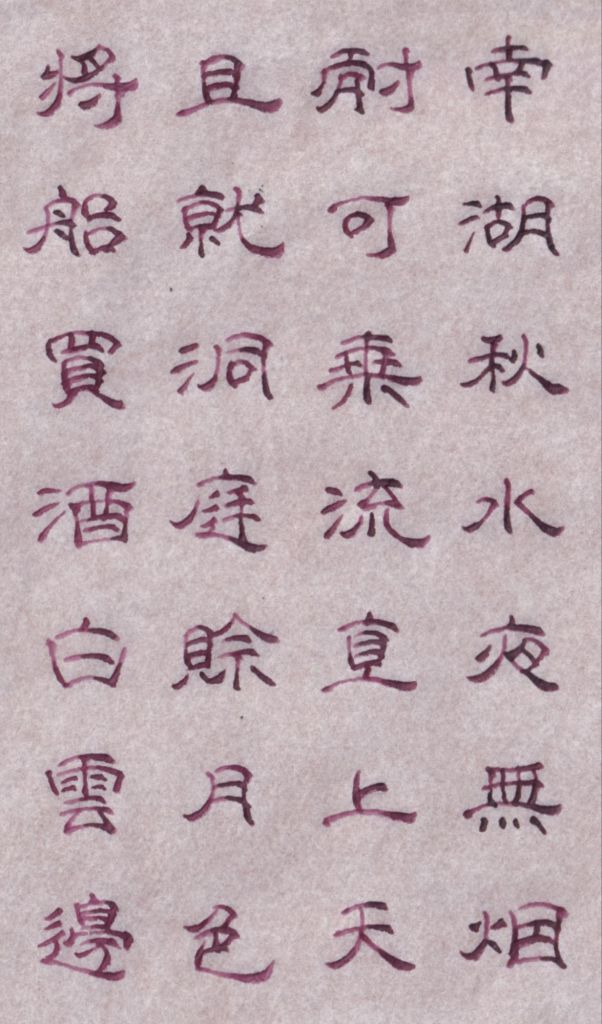 南湖秋水夜無烟
耐可乗流直上天
且就洞庭賒月色
將船買酒白雲邊